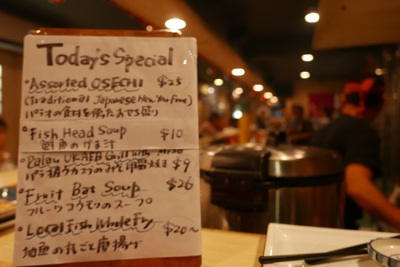 Today's Special
• Assorted OSECHI $25
(Traditional Japanese New Year Food)
パラオの食材を使ったおせち盛り
• Fish Head Soup $10
鮮魚のかま汁
• Palau UKAEB Grill with Miso
パラオ産ウカエブのみそ甲羅焼き $9
• Fruit Bat Soup $26
フルーツコウモリのスープ
• Local Fish Whole Fry $20~
地魚の丸ごと唐揚げ